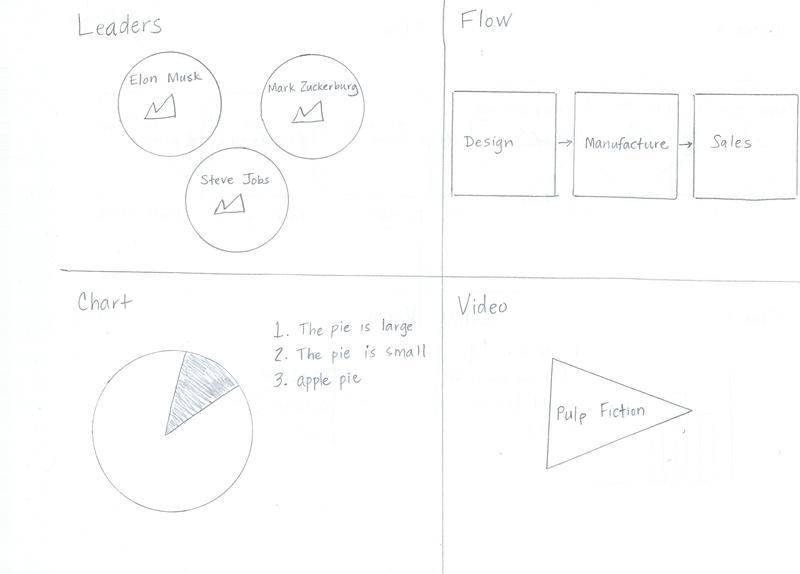 Leaders
Elon Musk
Mark Zuckerburg
Steve Jobs
Flow
Design
Manufacture
Sales
Chart
1. The pie is large
2. The pie is small
3. apple pie
Video
Pulp Fiction